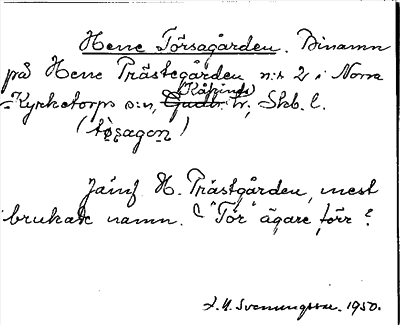 Herre Törsagården. Binamn
på Herre Prästegården n:r 2 i Norra
Kyrketorps s:n, Gudh. (Kåkinds) hr, Skb. l.
(tø̀sagon)
Jämf H. Prästgården, mest
brukade namn. "Tor" ägare förr?
Svenungsson 1950.